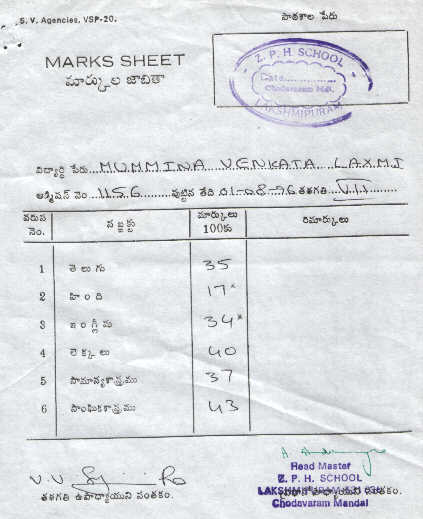 S. V. Agencies, VSP-20.
పాఠశాల పేరు
MARKS SHEET
మార్కుల జాబితా
Z. P. H. SCHOOL
Date
Chodavaram Mdl.
LAKSHMIPURAM
విద్యార్థి పేరు MUMMINA VENKATA LAXMI
అడ్మిషన్ నెం 1156 పుట్టిన తేది 01-08-76 తరగతి VII
వరుస నెం. సబ్జక్టు మార్కులు 100కు రిమార్కులు
1 తెలుగు 35
2 హింది 17*
3 ఇంగ్లీషు 34*
4 లెక్కలు 40
5 సామాన్యశాస్త్రము 37
6 సాంఘికశాస్త్రము 43
తరగతి ఉపాధ్యాయుని సంతకం.
Head Master
Z. P. H. SCHOOL
LAKSHMIPURAM
ప్రధానోపాధ్యాయుని సంతకం.
Chodavaram Mandal